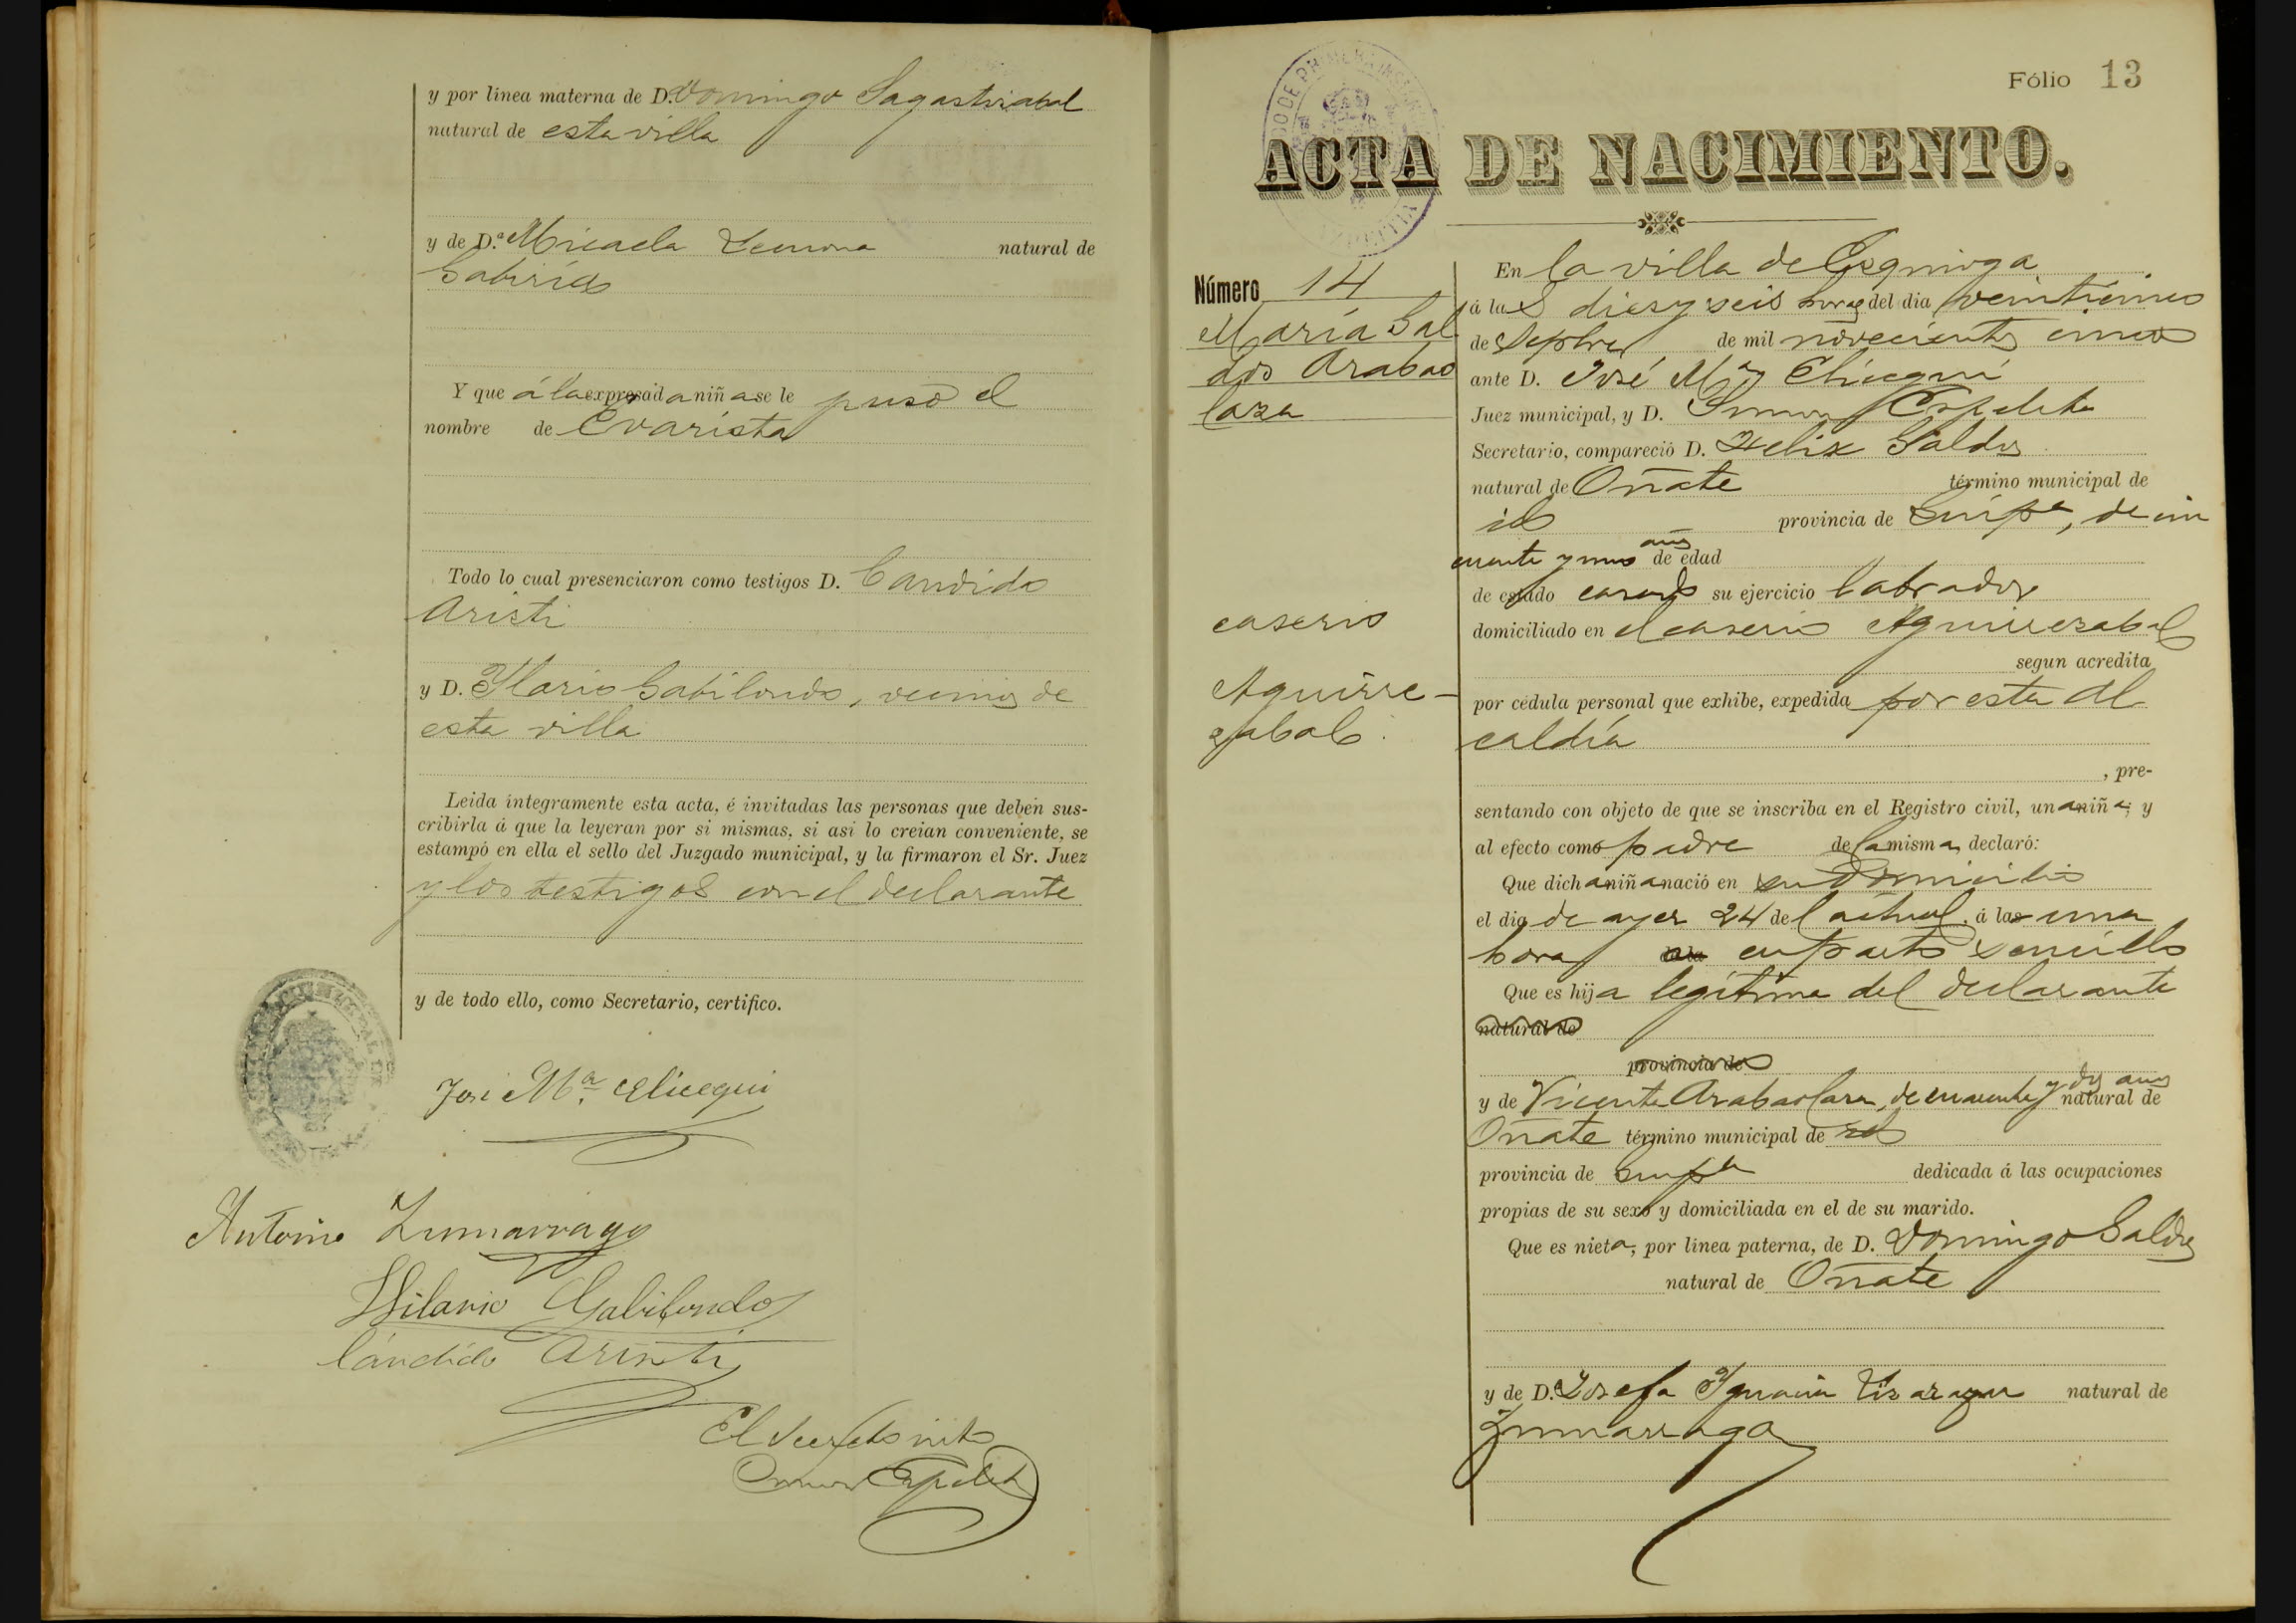 y por línea materna de D. Domingo Sagastizabal
natural de esta villa
y de D.ª Micaela Lecuona natural de
Gabiria
Y que á la expresada niña se le puso el
nombre de Evarista
Todo lo cual presenciaron como testigos D. Candido
Aristi
y D. Ylario Gabilondo, vecinos de
esta villa
Leida íntegramente esta acta, é invitadas las personas que deben sus-
cribirla á que la leyeran por si mismas, si asi lo creian conveniente, se
estampó en ella el sello del Juzgado municipal, y la firmaron el Sr. Juez
y los testigos con el declarante
y de todo ello, como Secretario, certifico.
José M.ª Elicegui
Antonio Zumarraga
Hilario Gabilondo
Cándido Aristi
El Secreto
Simon Ezpeleta
Fólio 13
ACTA DE NACIMIENTO.
Número 14
María Gal
dos Arabao
laza
caserio
Aguirre-
zabal.
En la villa de Ezquioga
á las diez y seis horas del dia veinticinco
de Sepbre de mil novecientos cinco
ante D. José M.ª Elicegui
Juez municipal, y D. Simon Ezpeleta
Secretario, compareció D. Felix Galdos
natural de Oñate término municipal de
id provincia de Guipª, de cin
cuenta y uno años de edad
de estado casado su ejercicio labrador
domiciliado en el caserio Aguirrezabal
segun acredita
por cédula personal que exhibe, expedida por esta Al
caldía
, pre-
sentando con objeto de que se inscriba en el Registro civil, una niña; y
al efecto como padre de la misma, declaró:
Que dicha niña nació en su domicilio
el dia de ayer 24 del actual á las una
hora en parto sencillo
Que es hija legítima del declarante
natural de
provincia de
y de Vicenta Arabaolaza, de cuarenta y dos años natural de
Oñate término municipal de id
provincia de Guipª dedicada á las ocupaciones
propias de su sexo y domiciliada en el de su marido.
Que es nieta, por línea paterna, de D. Domingo Galdos
natural de Oñate
y de D.ª Josefa Ygnacia natural de
Zumarraga